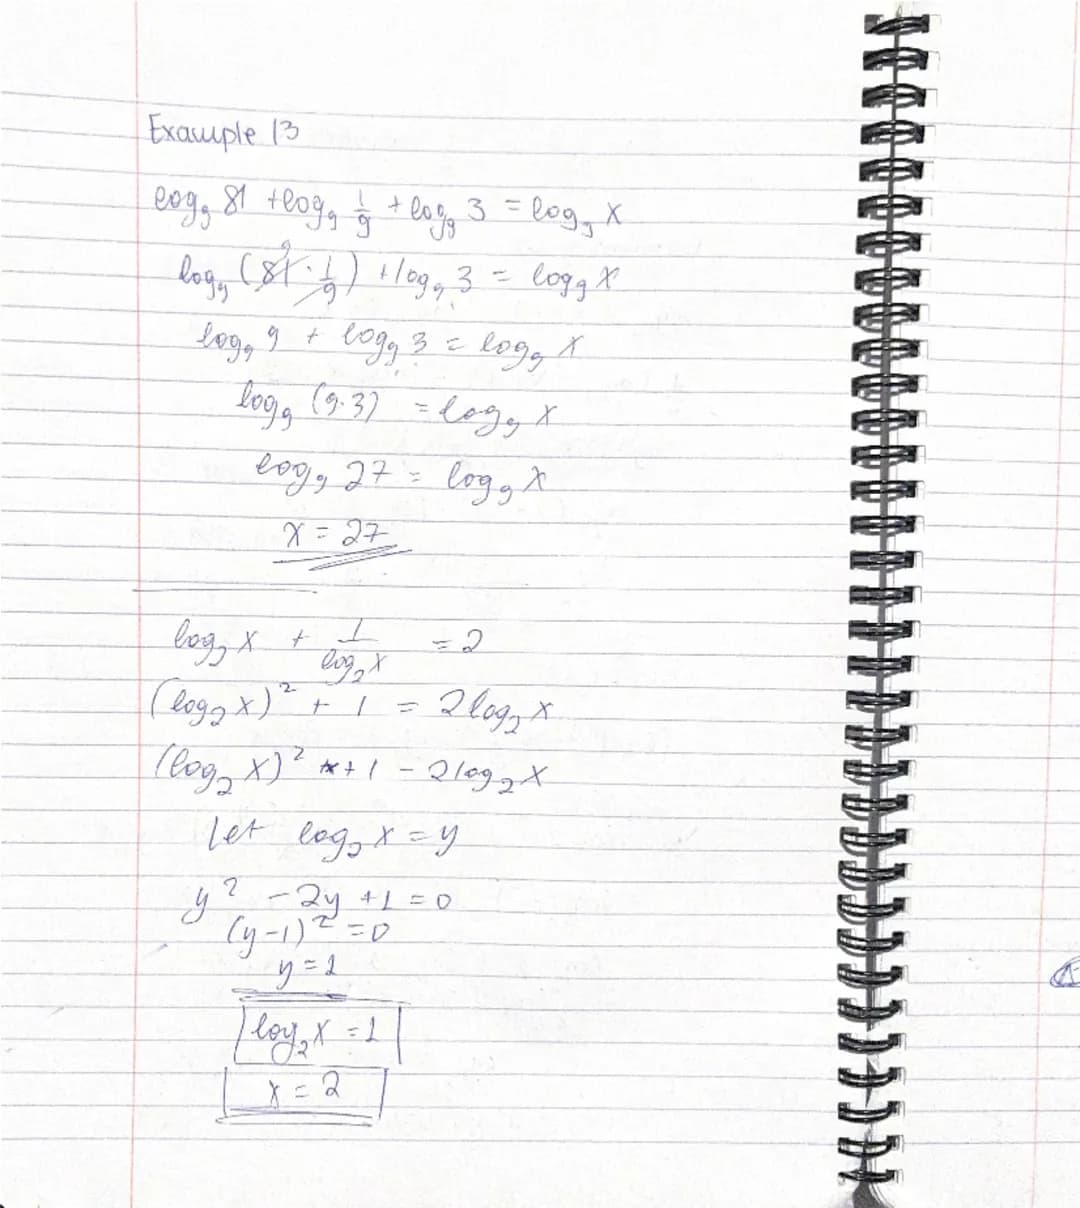 Example 13
log₉ 81 + log₉ 1/9 + log₉ 3 = log₉ x
log₉ (81 · 1/9) + log₉ 3 = log₉ x
log₉ 9 + log₉ 3 = log₉ x
log₉ (9·3) = log₉ x
log₉ 27 = log₉ x
x = 27
log₂ x + 1/log₂ x = 2
(log₂ x)² + 1 = 2 log₂ x
(log₂ x)² + 1 - 2 log₂ x
Let log₂ x = y
y² - 2y + 1 = 0
(y-1)² = 0
y = 1
log₂ x = 1
x = 2